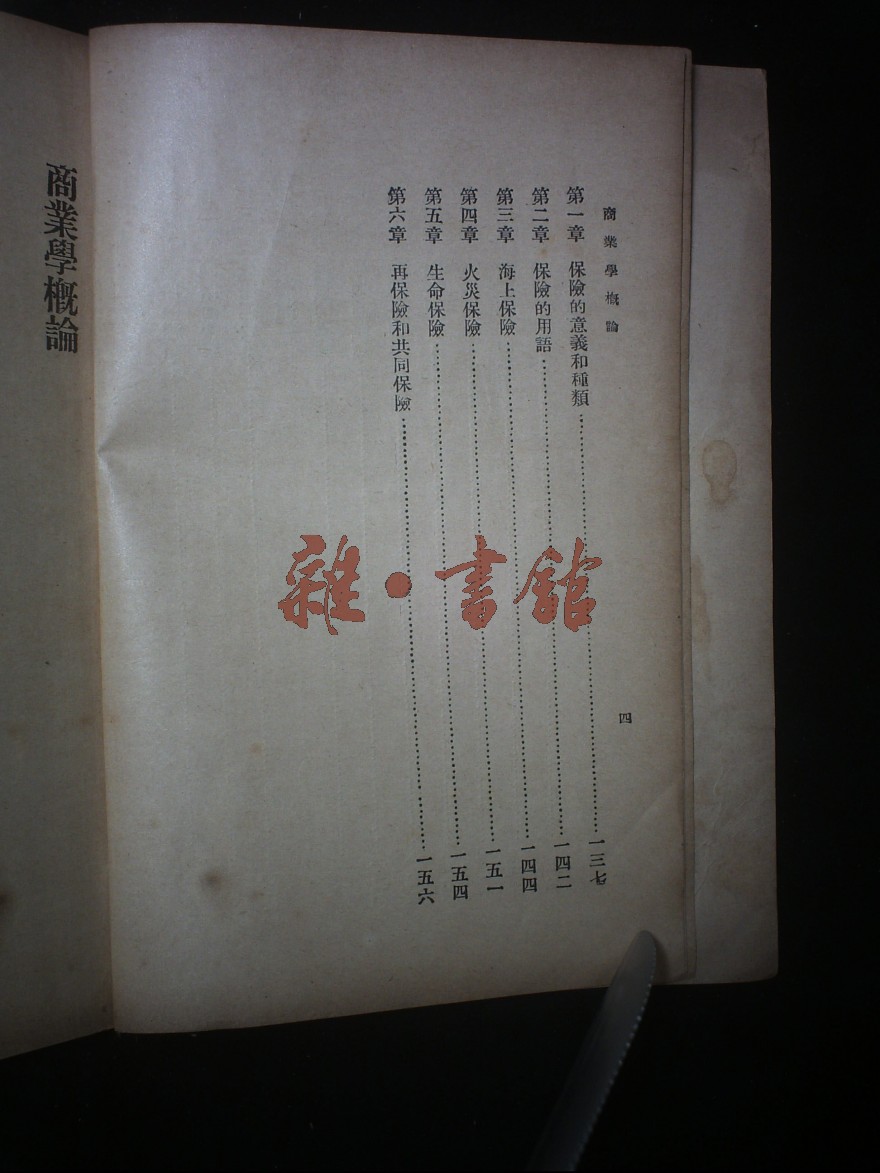 商業學概論
四
第一章 保險的意義和種類……一三七
第二章 保險的用語……一四二
第三章 海上保險……一四四
第四章 火災保險……一五一
第五章 生命保險……一五四
第六章 再保險和共同保險……一五六
商業學概論
雜·書館